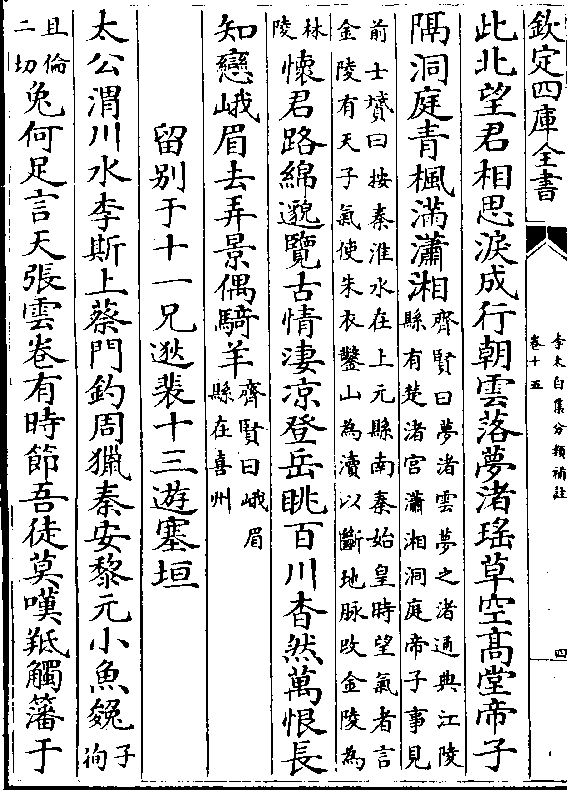 欽定四庫全書
李太白集分類補註
卷十五
四
此北望君相思淚成行朝雲落夢渚瑤草空髙堂帝子
隅洞庭青楓滿瀟湘齊賢曰夢渚雲夢之渚通典江陵縣有楚渚宫瀟湘洞庭帝子事見
前士贇曰按秦淮水在上元縣南秦始皇時望氣者言金陵有天子氣使朱衣鑿山為瀆以斷地脉改金陵為
林陵懷君路綿邈覽古情淒凉登岳眺百川杳然萬恨長
知戀峨眉去弄景偶騎羊齊賢曰峨眉縣在嘉州
留别于十一兄逖裴十三遊塞垣
太公渭川水李斯上蔡門釣周獵秦安黎元小魚㕙子徇
且倫二切兔何足言天張雲卷有時節吾徒莫嘆羝觸藩于